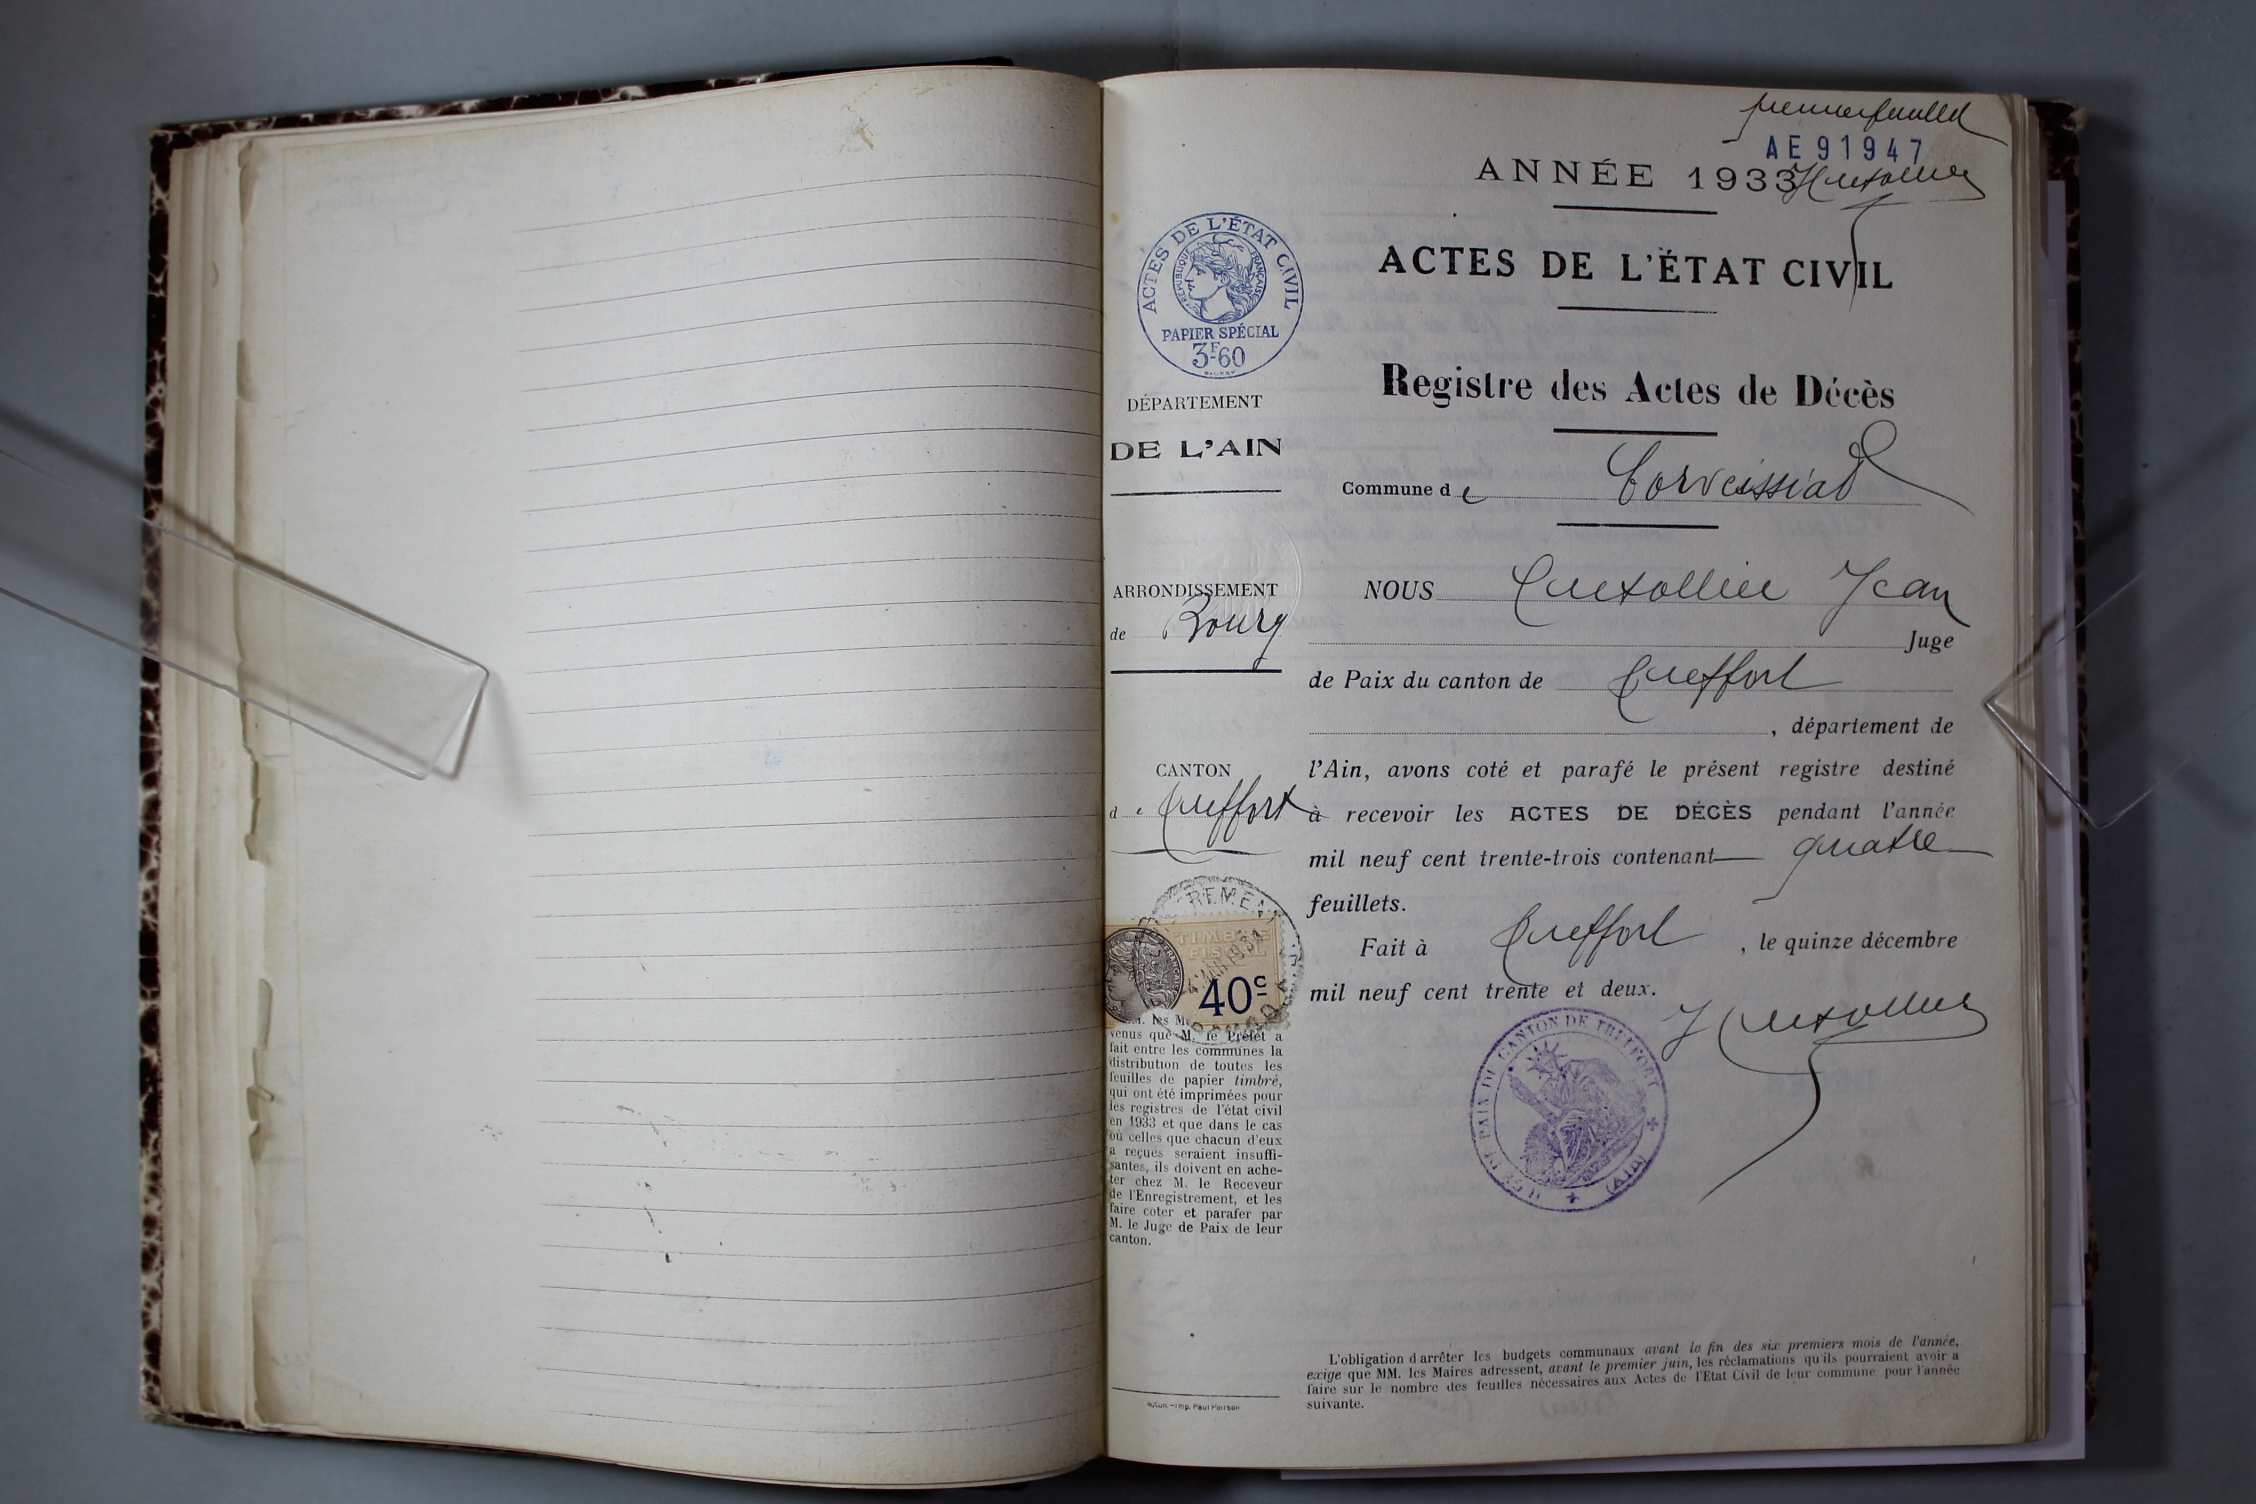 premier feuillet
AE91947
ANNÉE 1933
ACTES DE L'ÉTAT CIVIL
RÉPUBLIQUE FRANÇAISE
PAPIER SPÉCIAL
3F60
ACTES DE L'ÉTAT CIVIL
Registre des Actes de Décès
DÉPARTEMENT
DE L'AIN
Commune de Corveissiat
ARRONDISSEMENT
de Bourg
CANTON
de Treffort
NOUS Jean
Juge
de Paix du canton de Treffort
, département de
l'Ain, avons coté et parafé le présent registre destiné
à recevoir les ACTES DE DÉCÈS pendant l'année
mil neuf cent trente-trois contenant quatre
feuillets.
Fait à Treffort, le quinze décembre
mil neuf cent trente et deux.
TIMBRE
FISCAL
40c
MM. les M
venus que M. le Préfet a
fait entre les communes la
distribution de toutes les
feuilles de papier timbré,
qui ont été imprimées pour
les registres de l'état civil
en 1933 et que dans le cas
où celles que chacun d'eux
a reçues seraient insuffi-
santes, ils doivent en ache-
ter chez M. le Receveur
de l'Enregistrement, et les
faire coter et parafer par
M. le Juge de Paix de leur
canton.
PAIX DU CANTON DE TREFFORT
(AIN)
L'obligation d'arrêter les budgets communaux avant la fin des six premiers mois de l'année,
exige que MM. les Maires adressent, avant le premier juin, les réclamations qu'ils pourraient avoir à
faire sur le nombre des feuilles nécessaires aux Actes de l'Etat Civil de leur commune pour l'année
suivante.